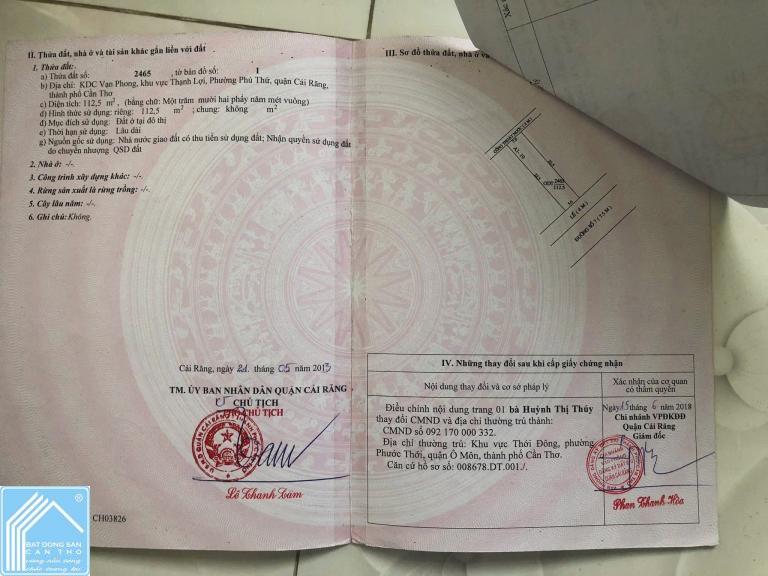 II. Thửa đất, nhà ở và tài sản khác gắn liền với đất
1. Thửa đất:
a) Thửa đất số: 2465 , tờ bản đồ số: 1
b) Địa chỉ: KDC Vạn Phong, khu vực Thạnh Lợi, Phường Phú Thứ, quận Cái Răng,
thành phố Cần Thơ
c) Diện tích: 112,5 m², (bằng chữ: Một trăm mười hai phẩy năm mét vuông)
d) Hình thức sử dụng: riêng: 112,5 m² ; chung: không m²
đ) Mục đích sử dụng: Đất ở tại đô thị
e) Thời hạn sử dụng: Lâu dài
g) Nguồn gốc sử dụng: Nhà nước giao đất có thu tiền sử dụng đất; Nhận quyền sử dụng đất
do chuyển nhượng QSD đất
2. Nhà ở: -/-.
3. Công trình xây dựng khác: -/-.
4. Rừng sản xuất là rừng trồng: -/-.
5. Cây lâu năm: -/-.
6. Ghi chú: Không.
Cái Răng, ngày 21 tháng 05 năm 2013
TM. ỦY BAN NHÂN DÂN QUẬN CÁI RĂNG
CHỦ TỊCH
PHÓ CHỦ TỊCH
Lê Thanh Tâm
CH03826
BAT DONG SAN
CAN THO
III. Sơ đồ thửa đất, nhà ở và
2465
112,5
LỀ (4 M)
ĐƯỜNG SỐ 7 (7.5 M)
IV. Những thay đổi sau khi cấp giấy chứng nhận
Nội dung thay đổi và cơ sở pháp lý
Xác nhận của cơ quan
có thẩm quyền
Điều chỉnh nội dung trang 01 bà Huỳnh Thị Thúy
thay đổi CMND và địa chỉ thường trú thành:
CMND số 092 170 000 332.
Địa chỉ thường trú: Khu vực Thới Đông, phường
Phước Thới, quận Ô Môn, thành phố Cần Thơ.
Căn cứ hồ sơ số: 008678.DT.001./.
Ngày 15 tháng 6 năm 2018
Chi nhánh VPĐKĐĐ
Quận Cái Răng
Giám đốc
Phan Thanh Hòa